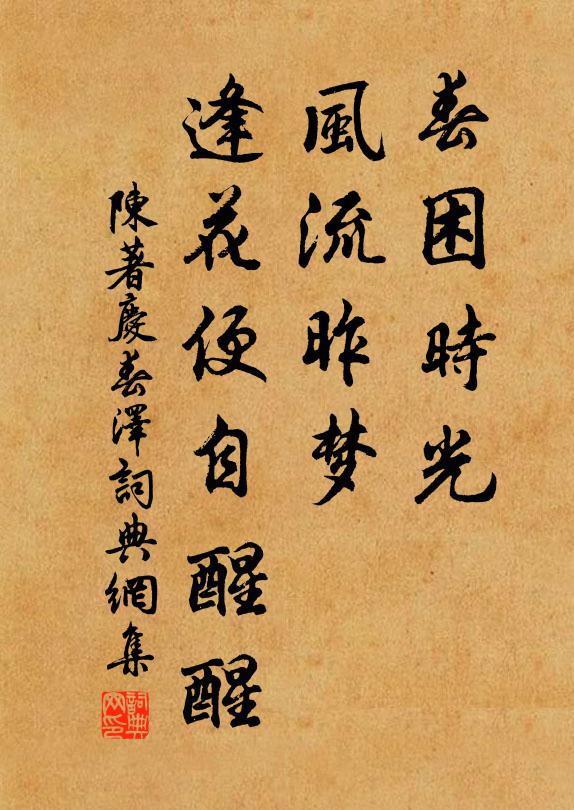 春困時光
風流昨梦
逢花便自醒醒
陳著慶春澤詞典網集
詞典网印